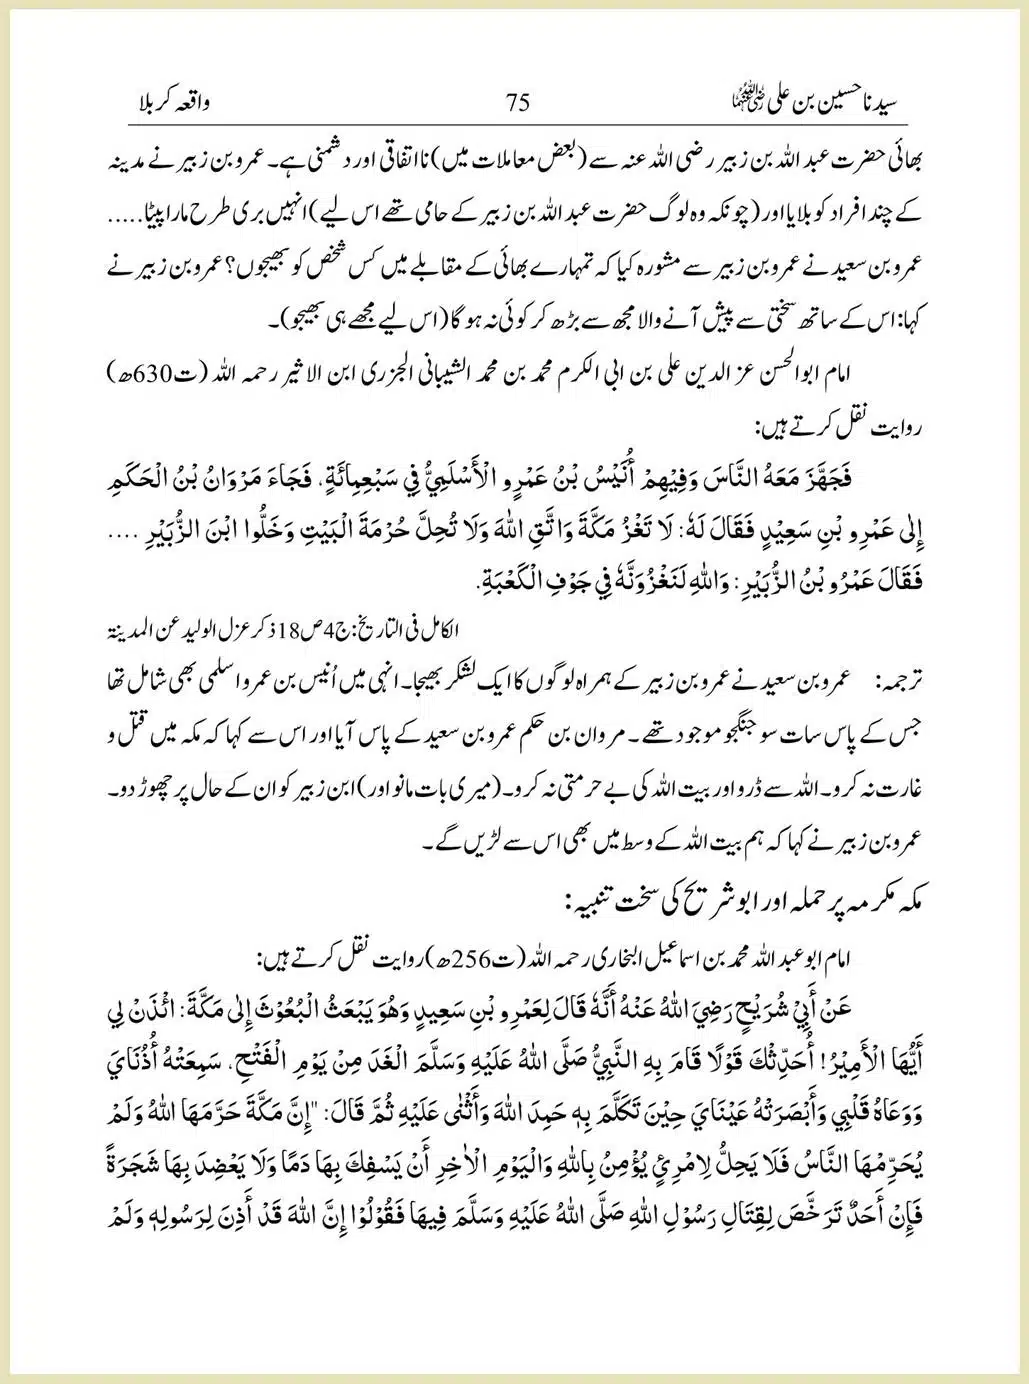 سیدنا حسین بن علی رضی اللہ عنہما 75 واقعہ کربلا
بھائی حضرت عبد اللہ بن زبیر رضی اللہ عنہ سے (بعض معاملات میں) نااتفاقی اور دشمنی ہے۔ عمرو بن زبیر نے مدینہ
کے چند افراد کو بلایا اور (چونکہ وہ لوگ حضرت عبد اللہ بن زبیر کے حامی تھے اس لیے) انہیں بری طرح مارا پیٹا.....
عمرو بن سعید نے عمرو بن زبیر سے مشورہ کیا کہ تمہارے بھائی کے مقابلے میں کس شخص کو بھیجوں؟ عمرو بن زبیر نے
کہا: اس کے ساتھ سختی سے پیش آنے والا مجھ سے بڑھ کر کوئی نہ ہو گا (اس لیے مجھے ہی بھیجو)۔
امام ابو الحسن عز الدین علی بن ابی الکرم محمد بن محمد الشیبانی الجزری ابن الاثیر رحمہ اللہ (ت630ھ)
روایت نقل کرتے ہیں:
فَجَهَّزَ مَعَهُ النَّاسَ وَفِيْهِمْ أُنَيْسُ بْنُ عَمْرٍو الْأَسْلَمِيُّ فِي سَبْعِمِائَةٍ، فَجَاءَ مَرْوَانُ بْنُ الْحَكَمِ
إِلٰى عَمْرِو بْنِ سَعِيْدٍ فَقَالَ لَهٗ: لَا تَغْزُ مَكَّةَ وَاتَّقِ اللّٰهَ وَلَا تُحِلَّ حُرْمَةَ الْبَيْتِ وَخَلُّوا ابْنَ الزُّبَيْرِ ....
فَقَالَ عَمْرُو بْنُ الزُّبَيْرِ: وَاللّٰهِ لَنَغْزُوَنَّهٗ فِي جَوْفِ الْكَعْبَةِ.
الکامل فی التاریخ: ج4ص18 ذکر عزل الولید عن المدینۃ
ترجمہ: عمرو بن سعید نے عمرو بن زبیر کے ہمراہ لوگوں کا ایک لشکر بھیجا۔ انہی میں اُنیس بن عمرو اسلمی بھی شامل تھا
جس کے پاس سات سو جنگجو موجود تھے۔ مروان بن حکم عمرو بن سعید کے پاس آیا اور اس سے کہا کہ مکہ میں قتل و
غارت نہ کرو۔ اللہ سے ڈرو اور بیت اللہ کی بے حرمتی نہ کرو۔ (میری بات مانو اور) ابن زبیر کو ان کے حال پر چھوڑ دو۔
عمرو بن زبیر نے کہا کہ ہم بیت اللہ کے وسط میں بھی اس سے لڑیں گے۔
مکہ مکرمہ پر حملہ اور ابو شریح کی سخت تنبیہ:
امام ابو عبد اللہ محمد بن اسماعیل البخاری رحمہ اللہ (ت256ھ) روایت نقل کرتے ہیں:
عَنْ أَبِيْ شُرَيْحٍ رَضِيَ اللّٰهُ عَنْهُ أَنَّهٗ قَالَ لِعَمْرِو بْنِ سَعِيدٍ وَهُوَ يَبْعَثُ الْبُعُوْثَ إِلٰى مَكَّةَ: ائْذَنْ لِي
أَيُّهَا الْأَمِيْرُ! أُحَدِّثْكَ قَوْلًا قَامَ بِهِ النَّبِيُّ صَلَّى اللّٰهُ عَلَيْهِ وَسَلَّمَ الْغَدَ مِنْ يَوْمِ الْفَتْحِ، سَمِعَتْهُ أُذُنَايَ
وَوَعَاهُ قَلْبِي وَأَبْصَرَتْهُ عَيْنَايَ حِيْنَ تَكَلَّمَ بِهٖ حَمِدَ اللّٰهَ وَأَثْنٰى عَلَيْهِ ثُمَّ قَالَ: "إِنَّ مَكَّةَ حَرَّمَهَا اللّٰهُ وَلَمْ
يُحَرِّمْهَا النَّاسُ فَلَا يَحِلُّ لِامْرِئٍ يُؤْمِنُ بِاللّٰهِ وَالْيَوْمِ الْاٰخِرِ أَنْ يَسْفِكَ بِهَا دَمًا وَلَا يَعْضِدَ بِهَا شَجَرَةً
فَإِنْ أَحَدٌ تَرَخَّصَ لِقِتَالِ رَسُوْلِ اللّٰهِ صَلَّى اللّٰهُ عَلَيْهِ وَسَلَّمَ فِيهَا فَقُوْلُوْا إِنَّ اللّٰهَ قَدْ أَذِنَ لِرَسُولِهٖ وَلَمْ